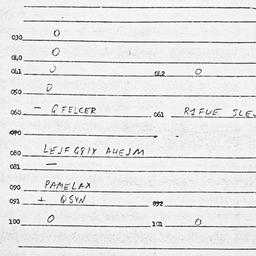 030 0
040 0
041 0 042 0
050 0
060 – GFELCER 061 R1FUE SLE
070 –
080 LEJF G8IX AHEJM
081 –
090 PAMELAX
091 + QSYN 092
100 0 101 0